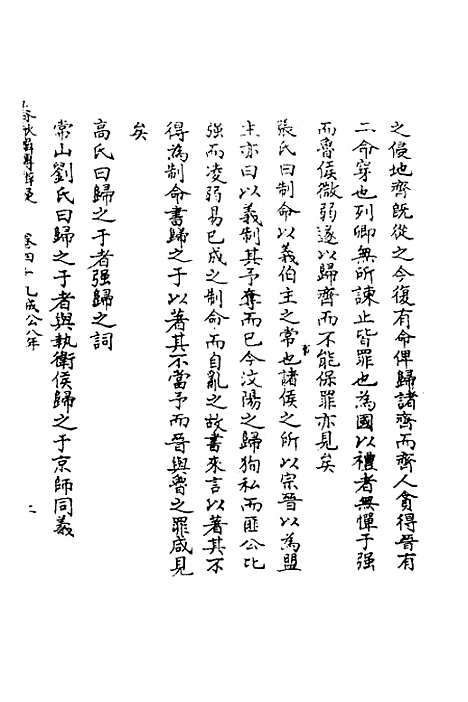 之侵地齊既從之今復有命俾歸諸齊而齊人貪得晉有
二命穿也列卿無所諫止皆罪也為國以禮者無憚于强
而魯侯微弱遂以歸齊而不能保罪亦見矣
張氏曰制命以義伯主之常也諸侯之所以宗晉以為盟
主亦曰以義制其予奪而已今汶陽之歸狥私而匪公比
强而凌弱易已成之制命而自亂之故書來言以著其不
得為制命書歸之于以著其不當予而晉與魯之罪咸見
矣
高氏曰歸之于者强歸之詞
常山劉氏曰歸之于者與執衛侯歸之于京師同義
春秋 卷四十九成公八年 二